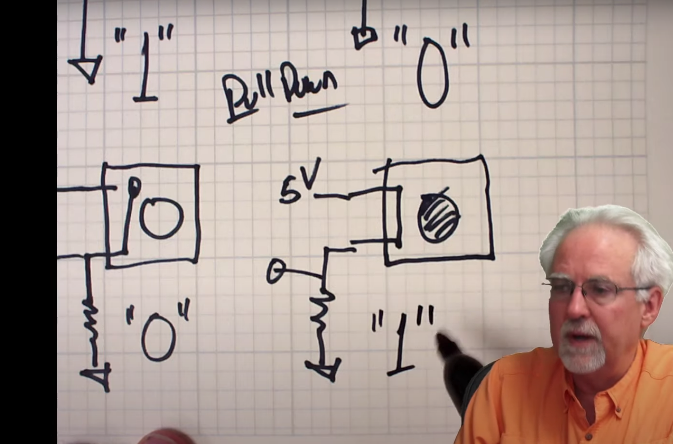 "1" "0"
Pull Down
5V
"0" "1"